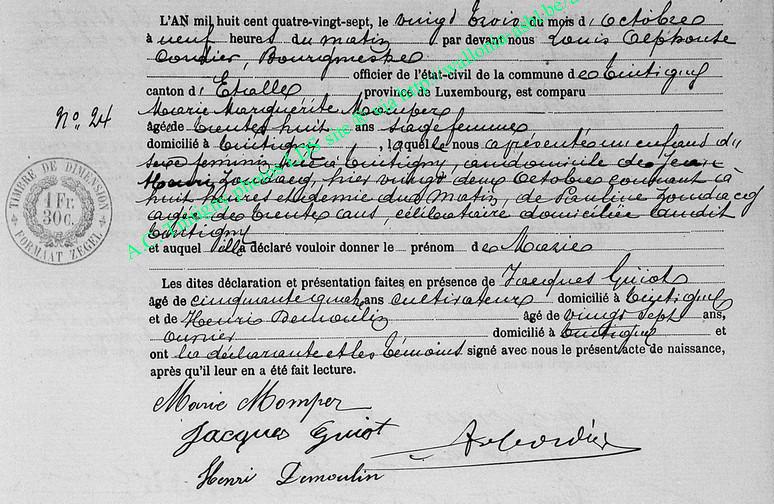 L'AN mil huit cent quatre-vingt-sept, le vingt trois du mois d'Octobre
à neuf heures du matin par devant nous Louis Alphonse
Cordier, Bourgmestre
officier de l'état-civil de la commune de Tintigny
canton d'Etalle province de Luxembourg, est comparu
N° 24
Marie Marguerite Momper
âgée de trente huit ans sagefemme
domicilié à Tintigny, laquelle nous a présenté un enfant du
sexe feminin, né à Tintigny, au domicile de Jean
Henri Jondacq, hier vingt deux Octobre courant à
huit heures et demie du matin, de Pauline Jondacq
agée de trente ans, célibataire domiciliée audit
Tintigny
et auquel elle a déclaré vouloir donner le prénom de Marie
Les dites déclaration et présentation faites en présence de Jacques Guiot
âgé de cinquante quatre ans cultivateur domicilié à Tintigny
et de Henri Demoulin âgé de vingt sept ans,
ouvrier domicilié à Tintigny et
ont la déclarante et les témoins signé avec nous le présent acte de naissance,
après qu'il leur en a été fait lecture.
Marie Momper
Jacques Guiot
Henri Demoulin
TIMBRE DE DIMENSION
1 Fr.
30 C.
FORMAAT ZEGEL
A.C. Tintigny photos LDS site & via http://wallonia-asbl.be/